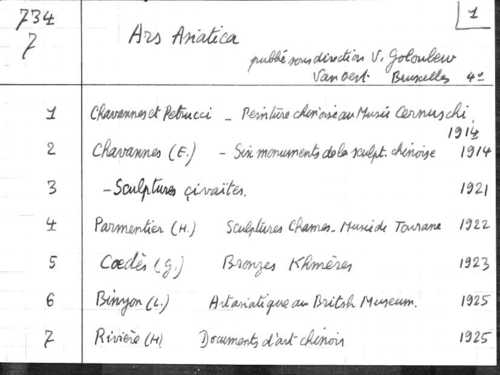 734
7
1
Ars Asiatica
publié sous direction V. Goloubew
Van Oest Bruxelles 4°
1 Chavannes et Petrucci _ Peinture chinoise au Musée Cernuschi.
1914
2 Chavannes (E.) - Six monuments de la sculpt. chinoise 1914
3 - Sculptures çivaïtes. 1921
4 Parmentier (H.) Sculptures Chames - Musée de Tourane 1922
5 Cœdès (G.) Bronzes Khmères 1923
6 Binyon (L.) Art asiatique au British Museum. 1925
7 Rivière (H) Documents d'art chinois 1925